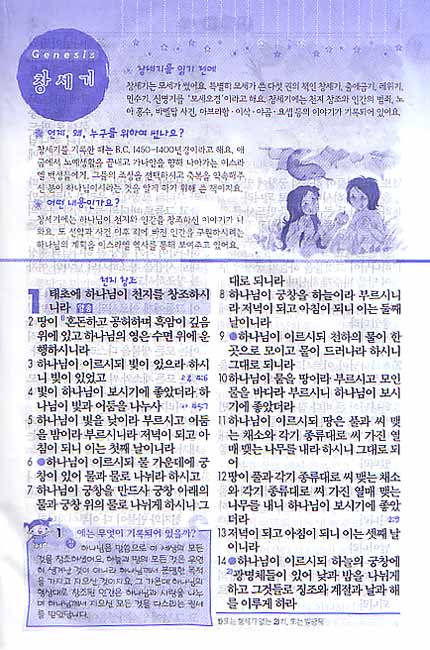 Genesis
창세기
창세기를 읽기 전에
창세기는 모세가 썼어요. 특별히 모세가 쓴 다섯 권의 책인 창세기, 출애굽기, 레위기,
민수기, 신명기를 '모세오경'이라고 해요. 창세기에는 천지 창조와 인간의 범죄, 노
아 홍수, 바벨탑 사건, 아브라함·이삭·야곱·요셉 등의 이야기가 기록되어 있어요.
언제, 왜, 누구를 위하여 썼나요?
창세기를 기록한 때는 B.C. 1450-1400년경이라고 해요. 애
굽에서 노예생활을 끝내고 가나안을 향해 나아가는 이스라
엘 백성들에게, 그들의 조상을 선택하시고 축복을 약속해주
신 분이 하나님이시라는 것을 알게 하기 위해 쓴 책이지요.
어떤 내용인가요?
창세기에는 하나님이 천지와 인간을 창조하신 이야기가 나
와요. 또 선악과 사건 이후 죄에 빠진 인간을 구원하시려는
하나님의 계획을 이스라엘 역사를 통해 보여주고 있어요.
천지 창조
1 태초에 하나님이 천지를 창조하시
니라
2 땅이 혼돈하고 공허하며 흑암이 깊음
위에 있고 하나님의 영은 수면 위에 운
행하시니라
3 하나님이 이르시되 빛이 있으라 하시
니 빛이 있었고
4 빛이 하나님이 보시기에 좋았더라 하
나님이 빛과 어둠을 나누사
5 하나님이 빛을 낮이라 부르시고 어둠
을 밤이라 부르시니라 저녁이 되고 아
침이 되니 이는 첫째 날이니라
6 하나님이 이르시되 물 가운데에 궁
창이 있어 물과 물로 나뉘라 하시고
7 하나님이 궁창을 만드사 궁창 아래의
물과 궁창 위의 물로 나뉘게 하시니 그
대로 되니라
8 하나님이 궁창을 하늘이라 부르시니
라 저녁이 되고 아침이 되니 이는 둘째
날이니라
9 하나님이 이르시되 천하의 물이 한
곳으로 모이고 뭍이 드러나라 하시니
그대로 되니라
10 하나님이 뭍을 땅이라 부르시고 모인
물을 바다라 부르시니 하나님이 보시
기에 좋았더라
11 하나님이 이르시되 땅은 풀과 씨 맺
는 채소와 각기 종류대로 씨 가진 열
매 맺는 나무를 내라 하시니 그대로 되
어
12 땅이 풀과 각기 종류대로 씨 맺는 채소
와 각기 종류대로 씨 가진 열매 맺는
나무를 내니 하나님이 보시기에 좋았
더라
13 저녁이 되고 아침이 되니 이는 셋째 날
이니라
14 하나님이 이르시되 하늘의 궁창에
2)광명체들이 있어 낮과 밤을 나뉘게
하고 그것들로 징조와 계절과 날과 해
를 이루게 하라
1 에는 무엇이 기록되어 있을까?
하나님은 말씀으로 이 세상의 모든
것을 창조하셨어요. 하늘과 땅의 모든 것은 우연
히 생겨난 것이 아니라 하나님께서 분명한 목적
을 가지고 지으신 것이지요. 그 가운데 하나님의
형상대로 창조된 인간은 하나님과 사랑을 나누
며 하나님께서 지으신 모든 것을 다스리는 권세
를 받았답니다.